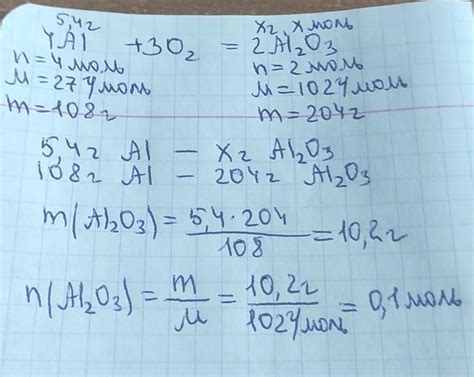 5,4г xг, x моль
4Al + 3O₂ = 2Al₂O₃
n = 4 моль n = 2 моль
M = 27 г/моль M = 102 г/моль
m = 108 г m = 204 г
5,4 г Al — xг Al₂O₃
108 г Al — 204 г Al₂O₃
m(Al₂O₃) = 5,4 · 204 / 108 = 10,2 г
n(Al₂O₃) = m / M = 10,2 г / 102 г/моль = 0,1 моль